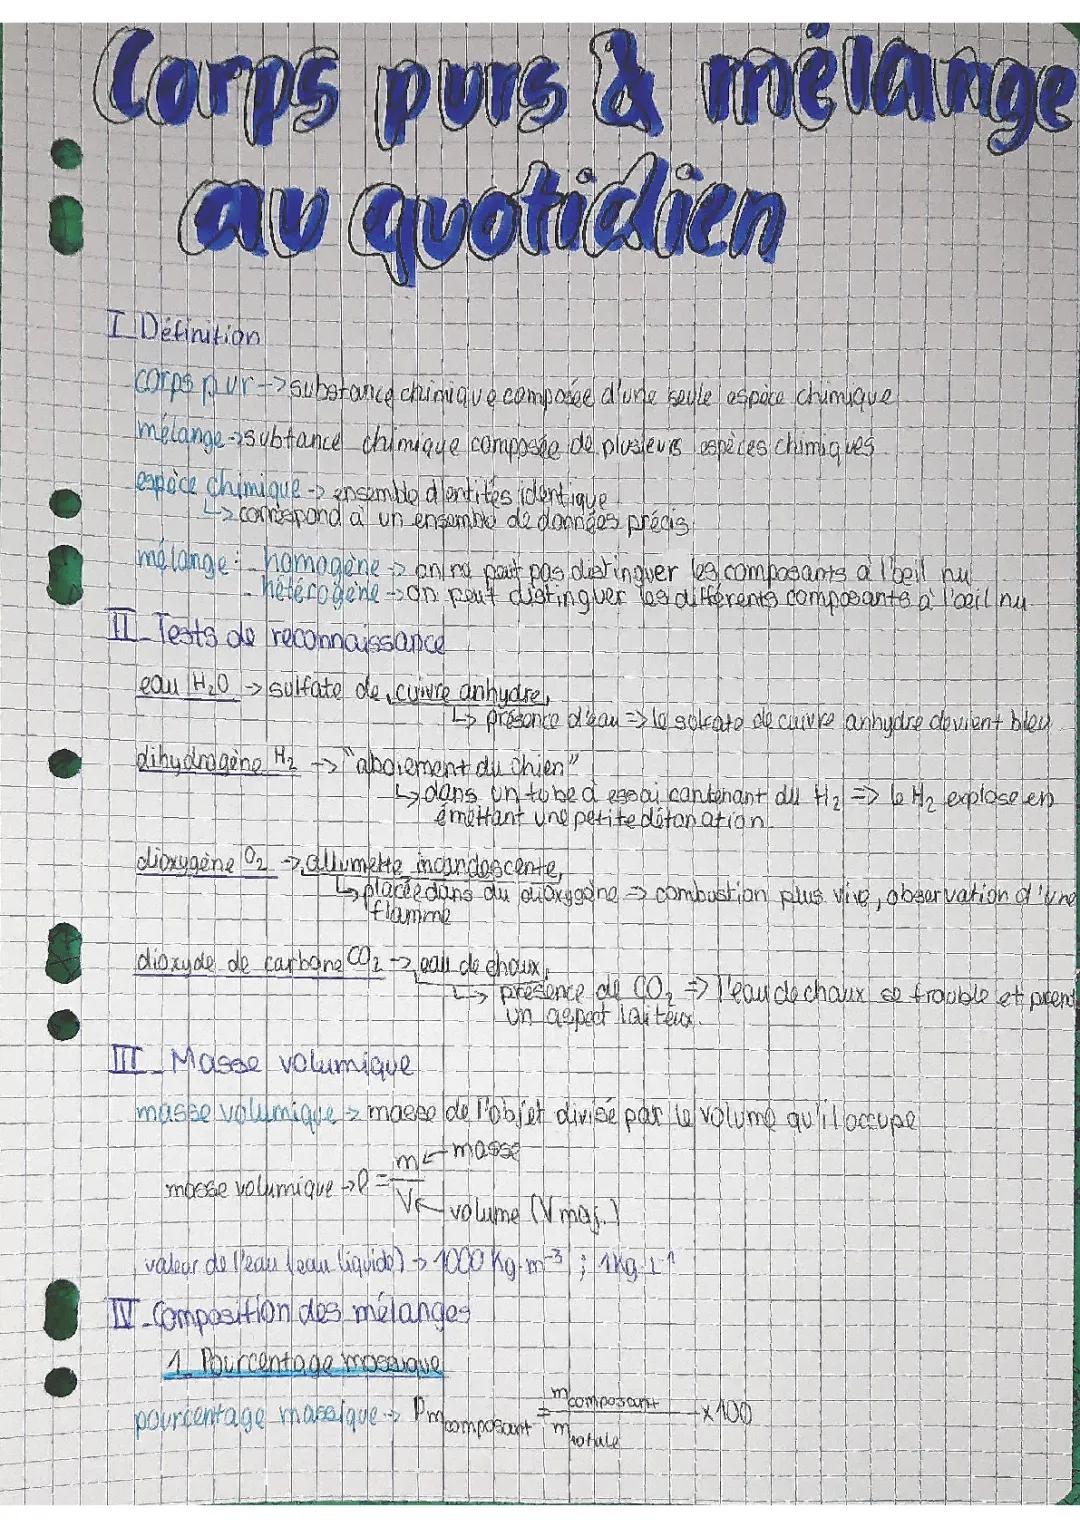 Corps purs & mélange
au quotidien
I_Définition
corps pur -> substance chimique composée d'une seule espèce chimique
mélange -> subtance chimique composée de plusieurs espèces chimiques
espèce chimique -> ensemble d'entités identique
↳ correspond à un ensemble de données précis
mélange : - homogène -> on ne peut pas distinguer les composants à l'oeil nu
- hétérogène -> on peut distinguer les différents composants à l'oeil nu
II_Tests de reconnaissance
eau H₂O -> sulfate de cuivre anhydre,
↳ présence d'eau => le sulfate de cuivre anhydre devient bleu
dihydrogène H₂ -> "aboiement du chien"
↳ dans un tube à essai contenant du H₂ => le H₂ explose en
émettant une petite détonation
dioxygène O₂ -> allumette incandescente,
↳ placée dans du dioxygène => combustion plus vive, observation d'une
flamme
dioxyde de carbone CO₂ -> eau de chaux,
↳ présence de CO₂ => l'eau de chaux se trouble et prend
un aspect laiteux.
III_Masse volumique
masse volumique -> masse de l'objet divisé par le volume qu'il occupe
masse volumique -> ρ = m/V m <- masse
V <- volume (V maj.)
valeur de l'eau (eau liquide) -> 1000 kg.m⁻³ ; 1kg.L⁻¹
IV_Composition des mélanges
1_Pourcentage massique
pourcentage massique -> Pm composant = m composant / m totale x100